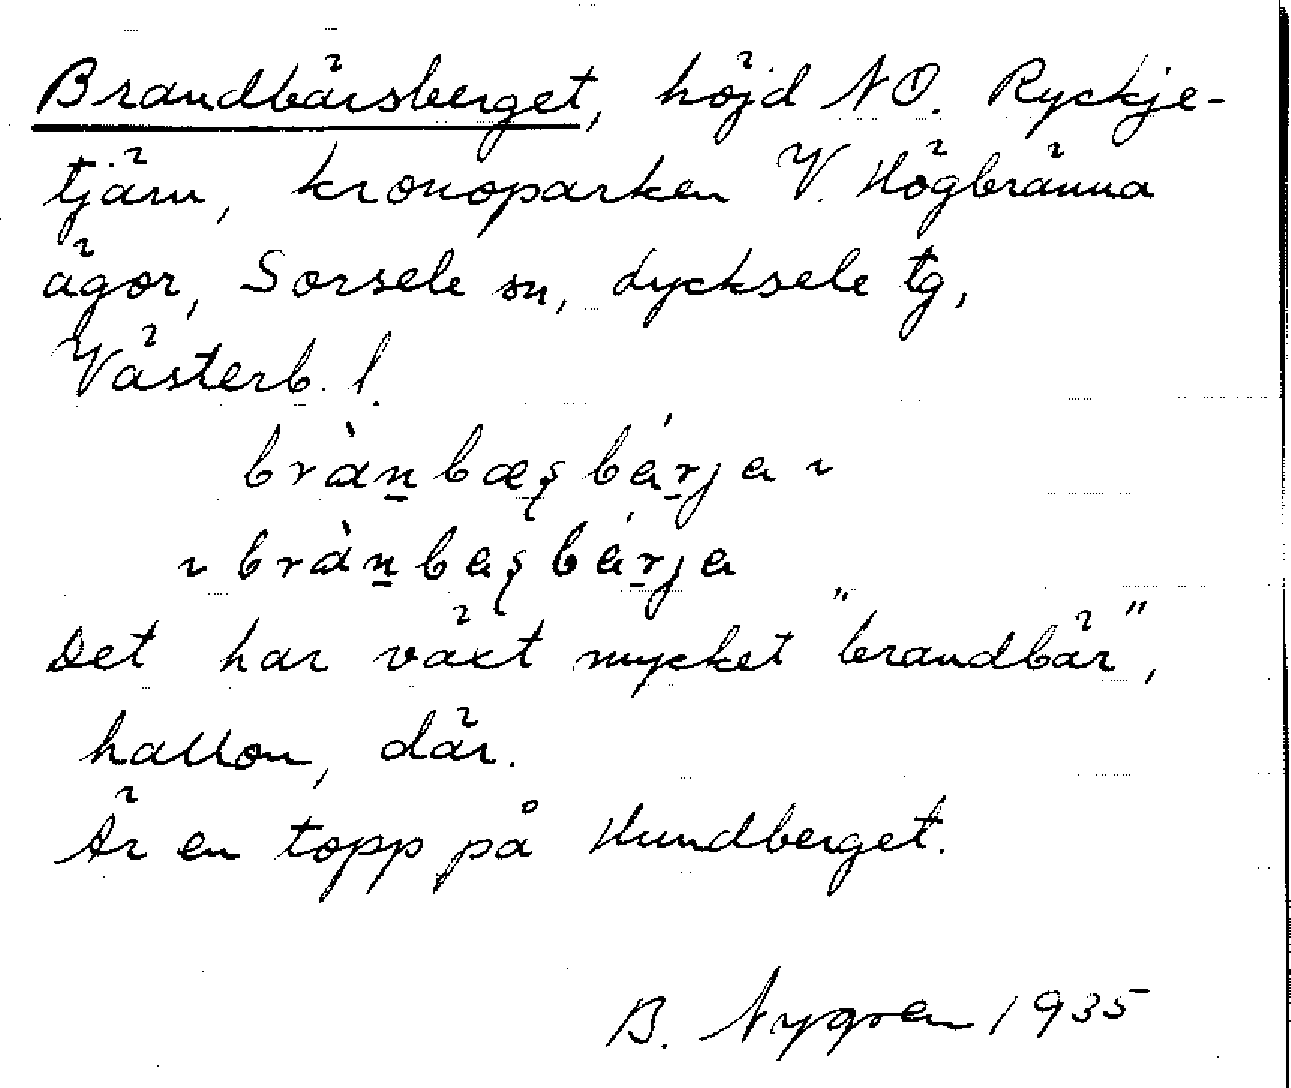 Brandbärsberget, höjd NO. Ryckje-
tjärn, kronoparken V. Högbränna
ägor, Sorsele sn, Lycksele tg,
Västerb. l.
brànbæʂbárja ~
~ brànbaʂbárja
Det har växt mycket "brandbär",
hallon, där.
Är en topp på Hundberget.
B. Nygren 1935